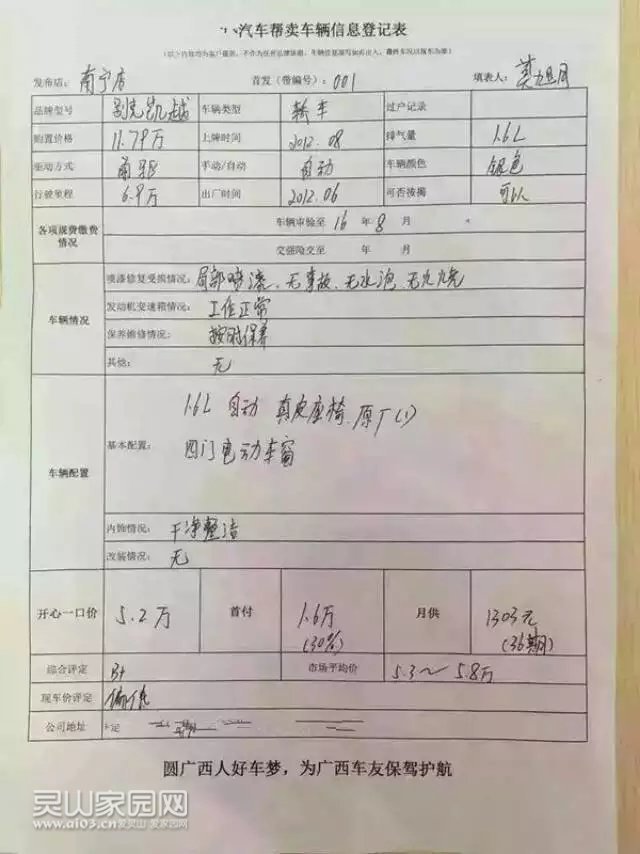 汽车帮卖车辆信息登记表
发布店: 南宁店 首发(带编号): 001 填表人:
品牌型号 别克凯越 车辆类型 轿车 过户记录
购置价格 11.79万 上牌时间 2012.08 排气量 1.6L
驱动方式 前驱 手动/自动 自动 车辆颜色 银色
行驶里程 6.9万 出厂时间 2012.06 可否按揭 可以
各项规费缴费情况 车辆审验至 16 年 8 月
交强险交至 年 月
车辆情况 喷漆修复受损情况: 局部喷漆、无事故、无水泡、无火烧
发动机变速箱情况: 工作正常
保养维修情况: 按时保养
其他: 无
车辆配置 基本配置: 1.6L 自动 真皮座椅.原厂
四门电动车窗
内饰情况: 干净整洁
改装情况: 无
开心一口价 5.2万 首付 1.6万 (30%) 月供 1303元 (36期)
综合评定 B+ 市场平均价 5.3～5.8万
现车价评定 偏低
公司地址
圆广西人好车梦，为广西车友保驾护航
灵山家园网
www.ai03.cn爱灵山 爱家园网